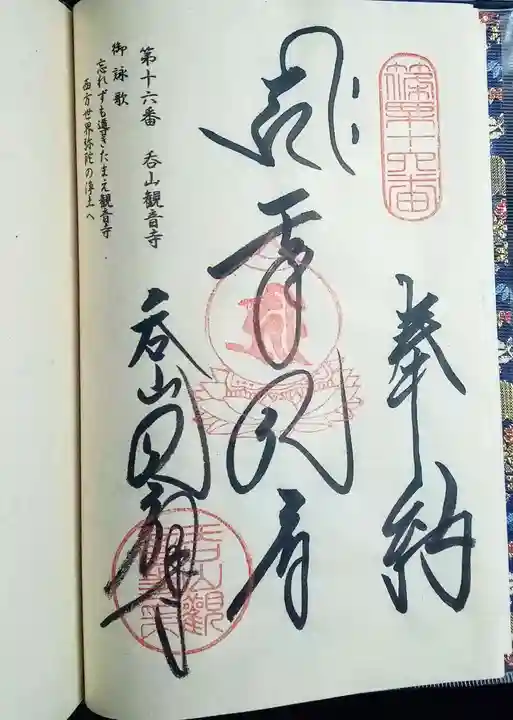 第十六番
奉納
千手観音
呑山観音寺
第十六番　呑山観音寺
御詠歌
忘れずも導きたまえ観音寺
西方世界弥陀の浄土へ